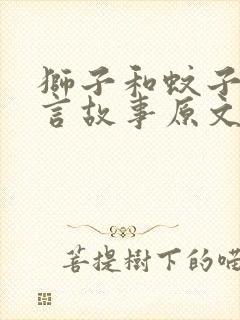 獅子和蚊子
言故事原文
菩提樹下的喵